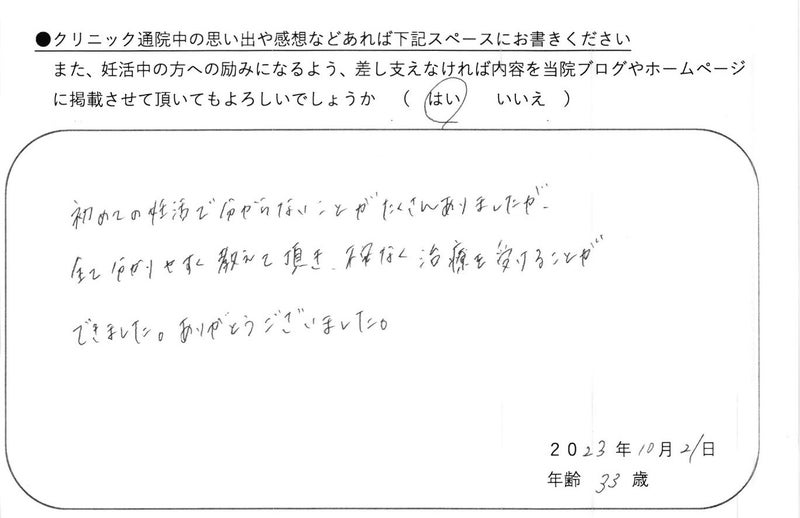 ●クリニック通院中の思い出や感想などあれば下記スペースにお書きください
また、妊活中の方への励みになるよう、差し支えなければ内容を当院ブログやホームページ
に掲載させて頂いてもよろしいでしょうか （ はい いいえ ）
初めての妊活で分からないことがたくさんありましたが、
全て分かりやすく教えて頂き、不安なく治療を受けることが
できました。ありがとうございました。
2023年10月21日
年齢 33歳